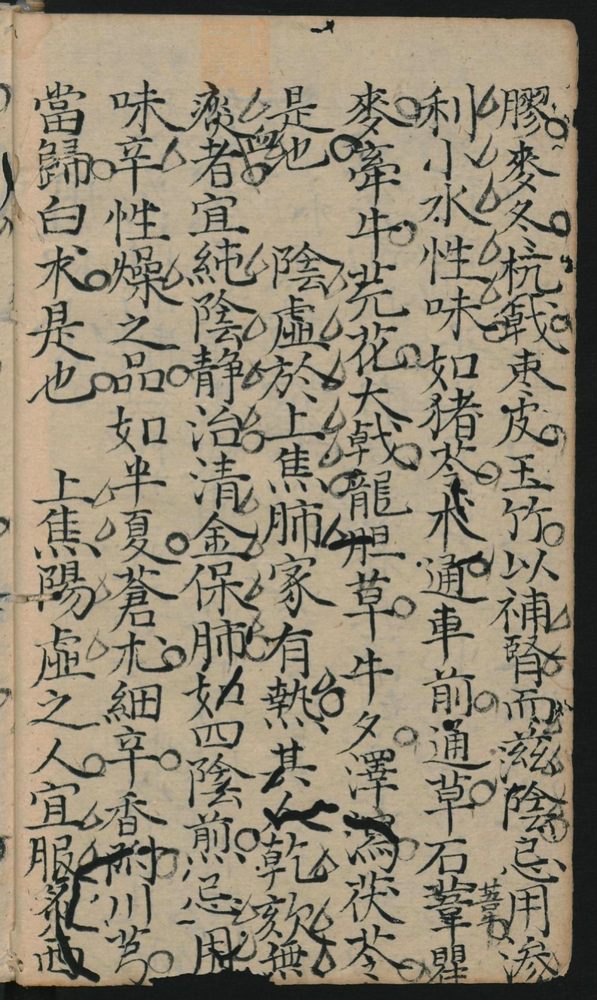 膠麥冬杭戟枣皮玉竹以補腎而滋陰忌用滲
利小水性味如猪苓木通車前通草石葦瞿
麥牽牛芫花大戟龍胆草牛夕澤瀉茯苓
是也 陰虛於上焦肺家有熱其人乾欬無
痰者宜純陰静治清金保肺如四陰煎忌用
味辛性燥之品如半夏蒼朮細辛香附川芎
當歸白朮是也 上焦陽虛之人宜服